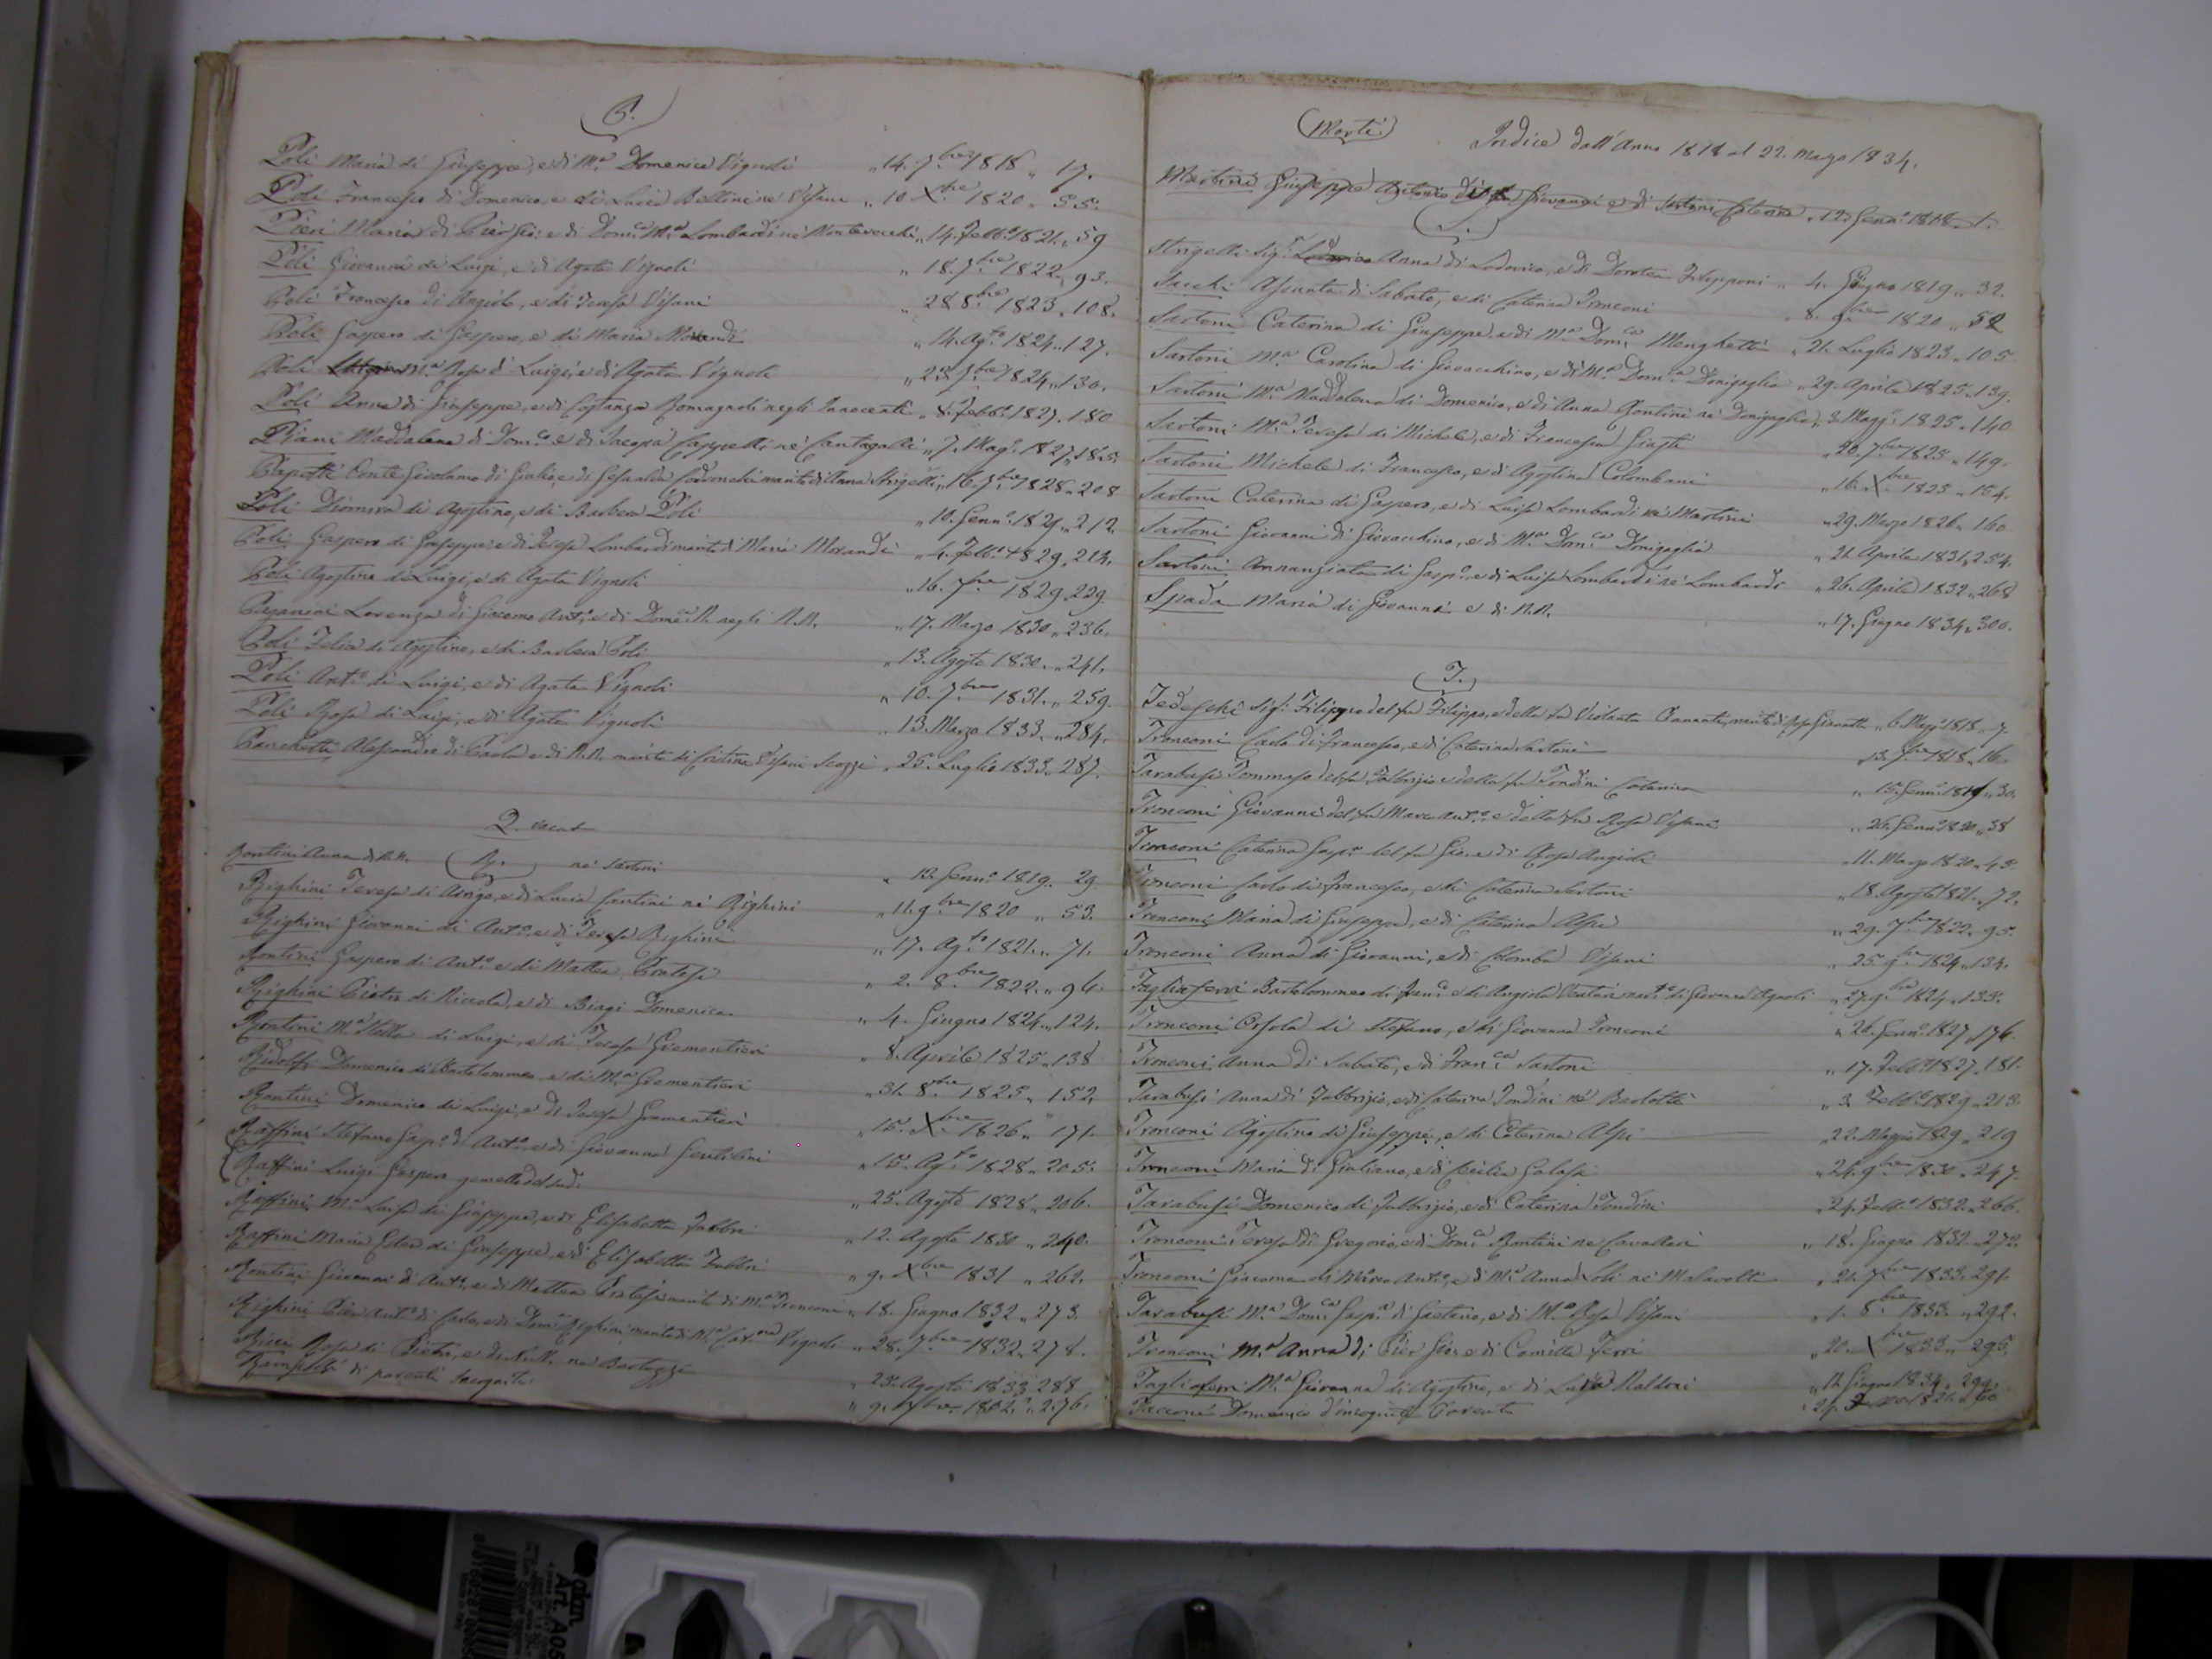 P.
Poli Maria di Giuseppe, e di M.a Domenica Vignoli „ 14. 7bre 1818 „ 17.
Poli Francesco di Domenico, e di Lucia Bellini ne' Visani „ 10 Xbre 1820 „ 55.
Pieri Maria di Pier Gio: e di Dom.ca M.a Lombardi ne' Montevecchi „ 14. Febb.o 1821. „ 59
Poli Giovanni di Luigi, e di Agata Vignoli „ 18. 7bre 1822 „ 93.
Poli Francesco di Angiolo, e di Teresa Visani „ 28 8bre 1823 „ 108.
Poli Gaspero di Gaspero, e di Maria Morandi „ 14. Ag.to 1824 „ 127.
Poli M.a Rosa di Luigi, e di Agata Vignoli „ 23. 7bre 1824 „ 130.
Poli Anna di Giuseppe, e di Costanza Romagnoli negli Innocenti „ 8. Febb.o 1827. 180
Piani Maddalena di Dom.co e di Jacopa Cappelli ne' Cantagalli „ 7. Mag.o 1827 „ 185.
Conte Girolamo di Giulio, e di Gesualda marito di Anna Strigelli „ 16. 7bre 1828 „ 208
Poli Dionira di Agostino, e di Barbera Poli „ 10. Genn.o 1829. „ 212.
Poli Gaspero di Giuseppe e di Teresa Lombardi marito di Maria Morandi „ 4. Febb.o 1829. 214.
Poli Agostino di Luigi, e di Agata Vignoli „ 16. 7bre 1829. 229.
Paganini Lorenza di Giacomo Ant.o e di Domen.ca N. negli N.N. „ 17. Marzo 1830 „ 236.
Poli Felice di Agostino, e di Barbera Poli „ 13. Agosto 1830. „ 241.
Poli Ant.o di Luigi, e di Agata Vignoli „ 10. 7bre 1831. „ 259.
Poli Rosa di Luigi, e di Agata Vignoli „ 13. Marzo 1833. „ 284.
Alessandro di Paolo e di N.N. marito di Cristina Visani Scozzi „ 25. Luglio 1833. 287.
Q. vacat
R.
Rontini Anna di N.N. ne' Sartoni „ 12. Genn.o 1819. 29.
Righini Teresa di Arrigo, e di Lucia Santini ne' Righini „ 11. 9bre 1820 „ 53.
Righini Giovanni di Ant.o, e di Teresa Righini „ 17. Ag.to 1821. „ 71.
Rontini Gaspero di Ant.o e di Mattea Pratesi „ 2. 8bre 1822. „ 96.
Righini Pietro di Niccola, e di Biagi Domenica „ 4. Giugno 1824. „ 124.
Rontini M.a Stella di Luigi, e di Teresa Grementieri „ 8. Aprile 1825. „ 138
Ridolfi Domenico di Bartolommeo, e di M.a Grementieri „ 31. 8bre 1825. „ 152.
Rontini Domenico di Luigi, e di Teresa Grementieri „ 15. Xbre 1826 „ 171.
Raffini Stefano Gasp.o di Ant.o, e di Giovanna Gentilini „ 15. Ag.to 1828 „ 205.
Raffini Luigi Gaspero gemello del sud.o „ 25. Agosto 1828 „ 206.
Raffini M.a Luisa di Giuseppe, e di Elisabetta Fabbri „ 12. Agosto 1830 „ 240.
Raffini Maria Ester di Giuseppe, e di Elisabetta Fabbri „ 9. Xbre 1831 „ 262.
Rontini Giovanni di Ant.o, e di Mattea Pratesi marito di M.a Tronconi „ 18. Giugno 1832 „ 273.
Righini Pier Ant.o di Carlo, e di Dom.ca Righini marito di M.a Cat.na Vignoli „ 28. 7bre 1832. 278.
Ricci Rosa di Pietro, e di N.N. ne' „ 25. Agosto 1833 288
di parenti incogniti „ 9. 1832. „ 276.
(Morti)
Indice dall'Anno 1818 al 22. Marzo 1834.
Martini Giuseppe Antonio di Giovanni e di Sartoni Caterina „ 12. Genn.o 1818 „ 1.
S.
Strigelli Sig.ra Anna di Lodovico, e di Dorotea Filipponi „ 4. Giugno 1819 „ 32.
Sacchi Assunta di Sabato, e di Caterina Tronconi „ 8. 9bre 1820 „ 52
Sartoni Caterina di Giuseppe, e di M.a Dom.ca Menghetti „ 21. Luglio 1823 „ 105.
Sartoni M.a Carolina di Giovacchino, e di M.a Dom.ca Donigaglia „ 29. Aprile 1825 „ 139.
Sartoni M.a Maddalena di Domenico, e di Anna Rontini ne' Donigaglia „ 3. Magg.o 1825 „ 140
Sartoni M.a Teresa di Michele, e di Francesca Giusti „ 20. 7bre 1825 „ 149.
Sartoni Michele di Francesco, e di Agostina Colombani „ 16. Xbre 1825 „ 154.
Sartoni Caterina di Gaspero, e di Luisa Lombardi ne' Martini „ 29. Marzo 1826 „ 160
Sartoni Giovanni di Giovacchino, e di M.a Dom.ca Donigaglia „ 21. Aprile 1831. 254.
Sartoni Annunziata di Gasp.o, e di Luisa Lombardi ne' Lombardi „ 26. Aprile 1832 „ 268
Spada Maria di Giovanni e di N.N. „ 17. Giugno 1834 „ 300.
T.
Tedeschi Sig.r Filippo del fu Filippo, e della fu Violante „ 6. Magg.o 1818 „ 7.
Tronconi Carlo di Francesco, e di Caterina Sartoni „ 13. 7bre 1818 „ 16.
Tarabusi Tommaso del fu Fabbrizio e della fu Tondini Caterina „ 15. Genn.o 1819 „ 30.
Tronconi Giovanni del fu Marc Ant.o e della fu Rosa Visani „ 26. Genn.o 1820 „ 38
Tronconi Caterina Gasp.a del fu Gio. e di Rosa Angioli „ 11. Marzo 1820 „ 43.
Tronconi Carlo di Francesco, e di Caterina Sartoni „ 18. Agosto 1821. „ 72.
Tronconi Maria di Giuseppe, e di Caterina Alpi „ 29. 7bre 1822. 95.
Tronconi Anna di Giovanni, e di Colomba Visani „ 25. 9bre 1824 „ 134.
Tagliaferri Bartolommeo di Fran.co e di Angiola Venturi mar.to di Giovanna Agnoli „ 27. 9bre 1824 „ 135.
Tronconi Orsola di Stefano, e di Giovanna Tronconi „ 26. Genn.o 1827 „ 176.
Tronconi Anna di Sabato, e di Fran.ca Sartoni „ 17. Febb.o 1827. 181.
Tarabusi Anna di Fabbrizio, e di Caterina Tondini ne' Bedotti „ 3. Febb.o 1829 „ 213.
Tronconi Agostino di Giuseppe, e di Caterina Alpi 22. Maggio 1829. 219
Tronconi Maria di Giuliano, e di Cecilia Galassi „ 24. 9bre 1830 „ 247.
Tarabusi Domenico di Fabbrizio, e di Caterina Tondini „ 24. Febb.o 1832. „ 266.
Tronconi Teresa di Gregorio, e di Dom.ca Rontini ne' Cavallari „ 18. Giugno 1832 „ 272.
Tronconi Giacoma di Marco Ant.o, e di M.a Anna Poli ne' Malavolti „ 21. 7bre 1833. 291.
Tarabusi M.a Dom.ca Gasp.a di Gaetano, e di M.a Rosa Visani „ 1. 8bre 1833. „ 292.
Tronconi M.a Anna di Pier Gio. e di Camilla Ferri „ 20. Xbre 1833 „ 295.
Tagliaferri M.a Giovanna di Agostino, e di Luisa Naldoni „ 12. Giugno 1834. 299.
Domenico d'incogniti Parenti